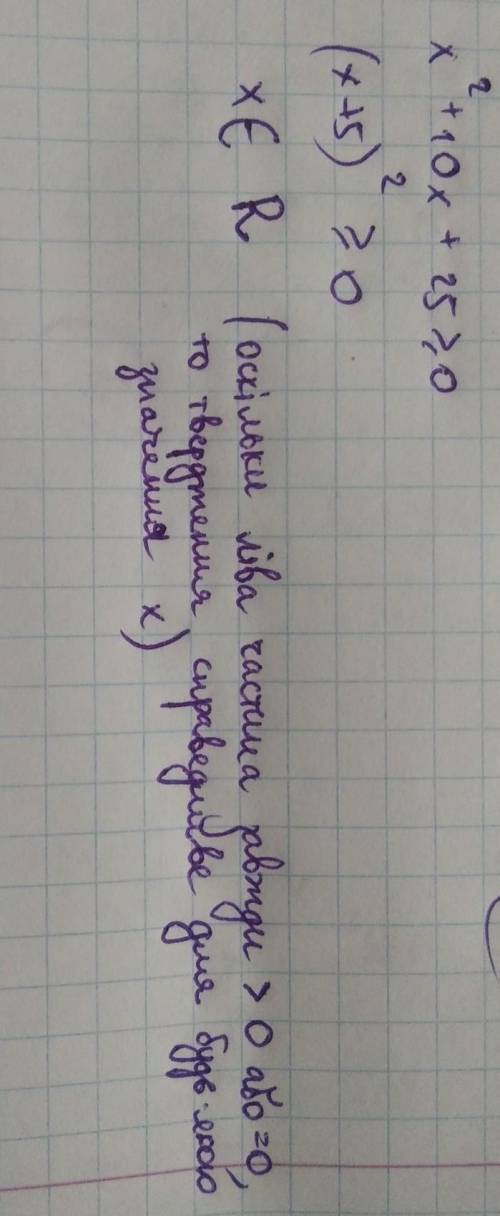 x² + 10x + 25 ≥ 0
(x+5)² ≥ 0
x ∈ R (оскільки ліва частина завжди > 0 або = 0,
то твердження справедливе для будь-якого
значення x)